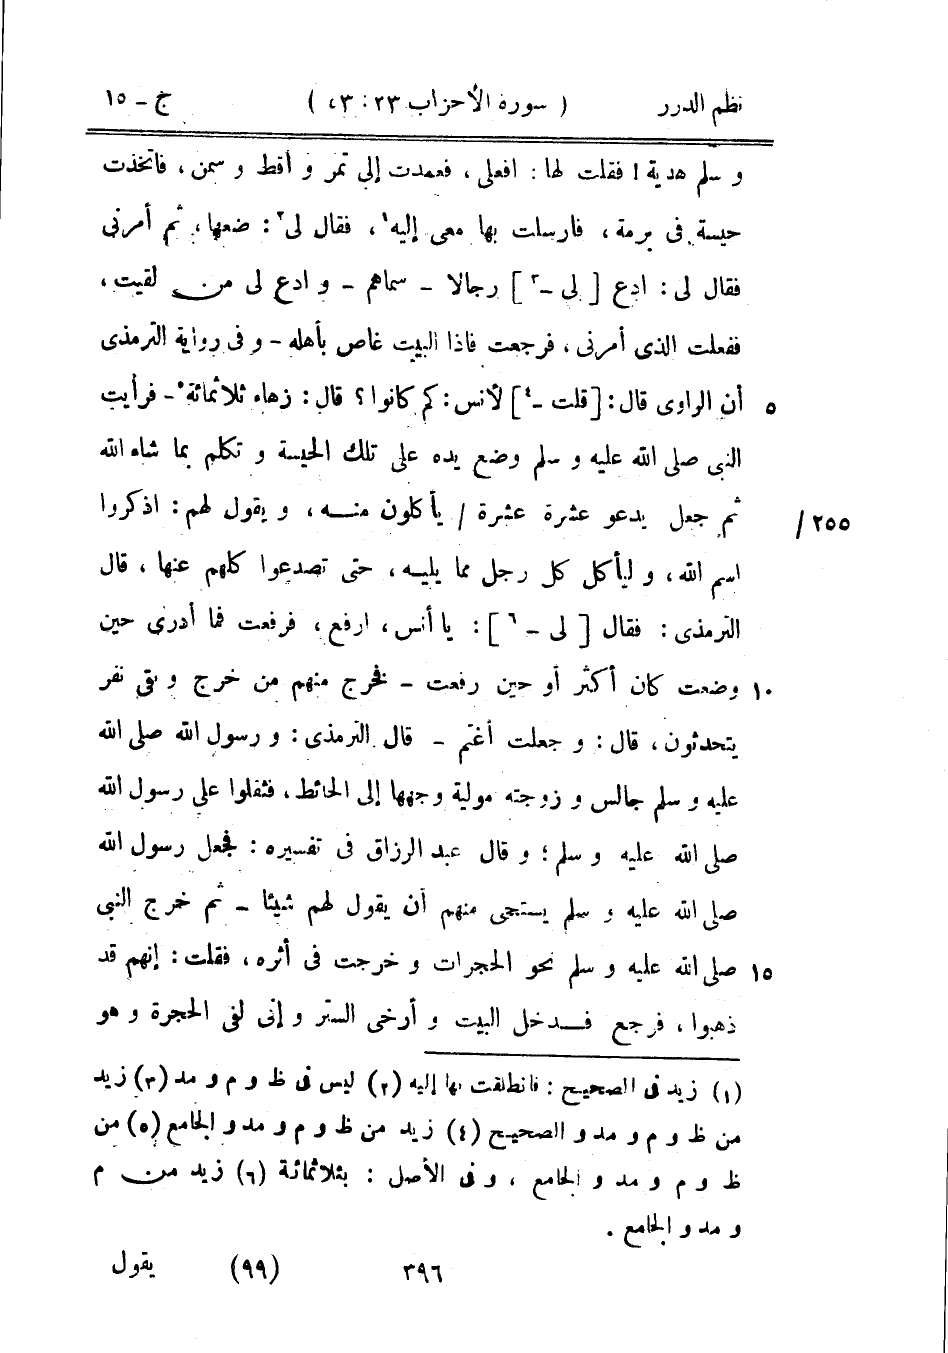 نظم الدرر ( سورة الأحزاب ٢٣ : ٣، ) ج – ١٥
و سلم هدية ! فقلت لها : افعلى ، فعمدت إلى تمر و أقط و سمن ، فاتخذت
حيسة فى برمة ، فارسلت بها معى إليه١ ، فقال لى٢ : ضعها ، ثم أمرنى
فقال لى : ادع [ لى – ٣ ] رجالا – سماهم – و ادع لى من لقيت ،
ففعلت الذى أمرنى ، فرجعت فاذا البيت غاص بأهله – و فى رواية الترمذى
٥ أن الراوى قال : [ قلت – ٤ ] لأنس : كم كانوا ؟ قال : زهاء ثلاثمائة٥ – فرأيت
النبى صلى الله عليه و سلم وضع يده على تلك الحيسة و تكلم بما شاء الله
٢٥٥/ ثم جعل يدعو عشرة عشرة / يأكلون منه ، و يقول لهم : اذكروا
اسم الله ، و ليأكل كل رجل مما يليه ، حتى تصدعوا كلهم عنها ، قال
الترمذى : فقال [ لى – ٦ ] : يا أنس ، ارفع ، فرفعت فما أدرى حين
١٠ وضعت كان أكثر أو حين رفعت – فخرج منهم من خرج و بقى نفر
يتحدثون ، قال : و جعلت أغتم – قال الترمذى : و رسول الله صلى الله
عليه و سلم جالس و زوجته مولية وجهها إلى الحائط ، فثقلوا على رسول الله
صلى الله عليه و سلم ؛ و قال عبد الرزاق فى تفسيره : فجعل رسول الله
صلى الله عليه و سلم يستحى منهم أن يقول لهم شيئا – ثم خرج النبى
١٥ صلى الله عليه و سلم نحو الحجرات و خرجت فى أثره ، فقلت : إنهم قد
ذهبوا ، فرجع فدخل البيت و أرخى الستر و إنى لفى الحجرة و هو
(١) زيد فى الصحيح : فانطلقت بها إليه (٢) ليس فى ظ و م و مد (٣) زيد
من ظ و م و مد و الصحيح (٤) زيد من ظ و م و مد و الجامع (٥) من
ظ و م و مد و الجامع ، و فى الأصل : بثلاثمائة (٦) زيد من م
و مد و الجامع .
٣٩٦ (٩٩) يقول